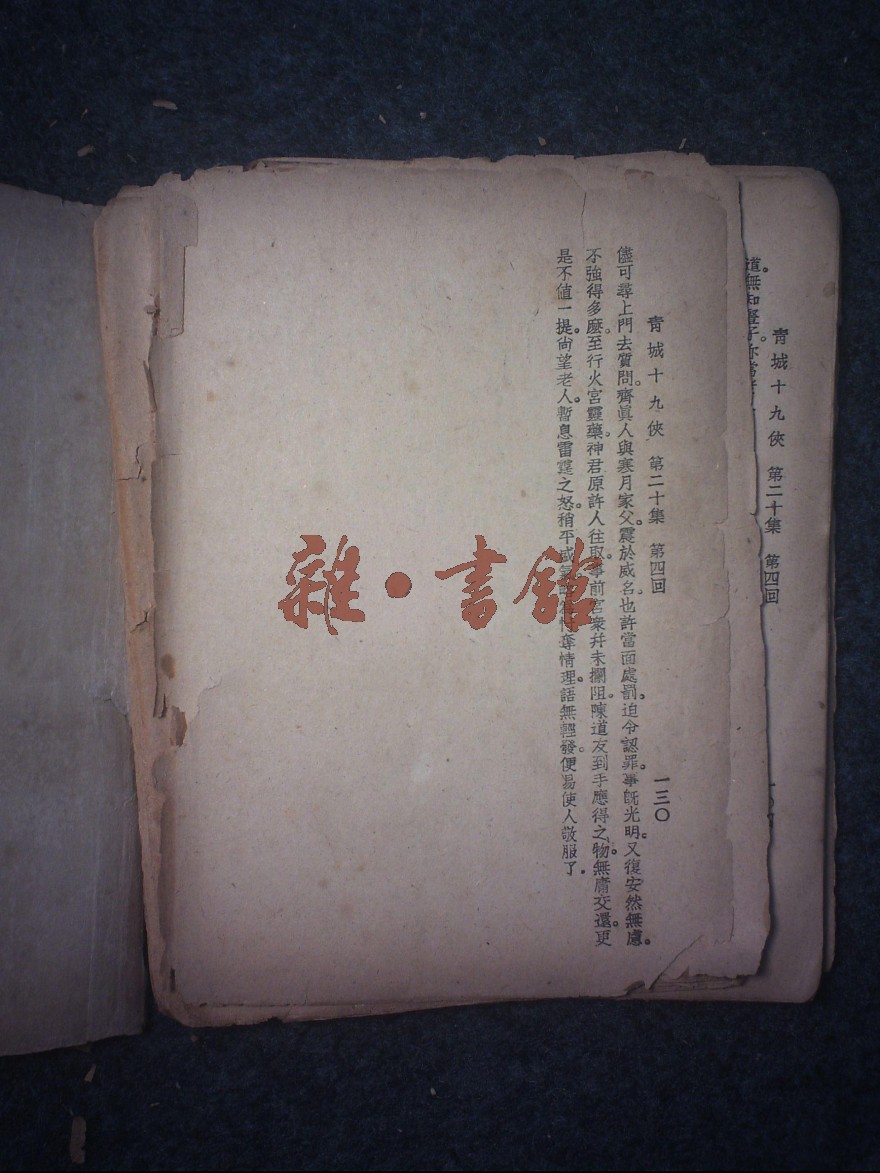 道。無知豎子。你當
青城十九俠 第二十集 第四回
青城十九俠 第二十集 第四回 一三〇
儘可尋上門去質問。齊眞人與寒月家父。震於威名。也許當面處罰。迫令認罪。事旣光明。又復安然無慮。
不強得多麼。至行火宮靈藥。神君原許人往取。事前宮衆幷未攔阻。陳道友到手應得之物。無庸交還。更
是不值一提。尙望老人。暫息雷霆之怒。稍平盛氣 奪情理。語無輕發。便易使人敬服了。
雜·書館